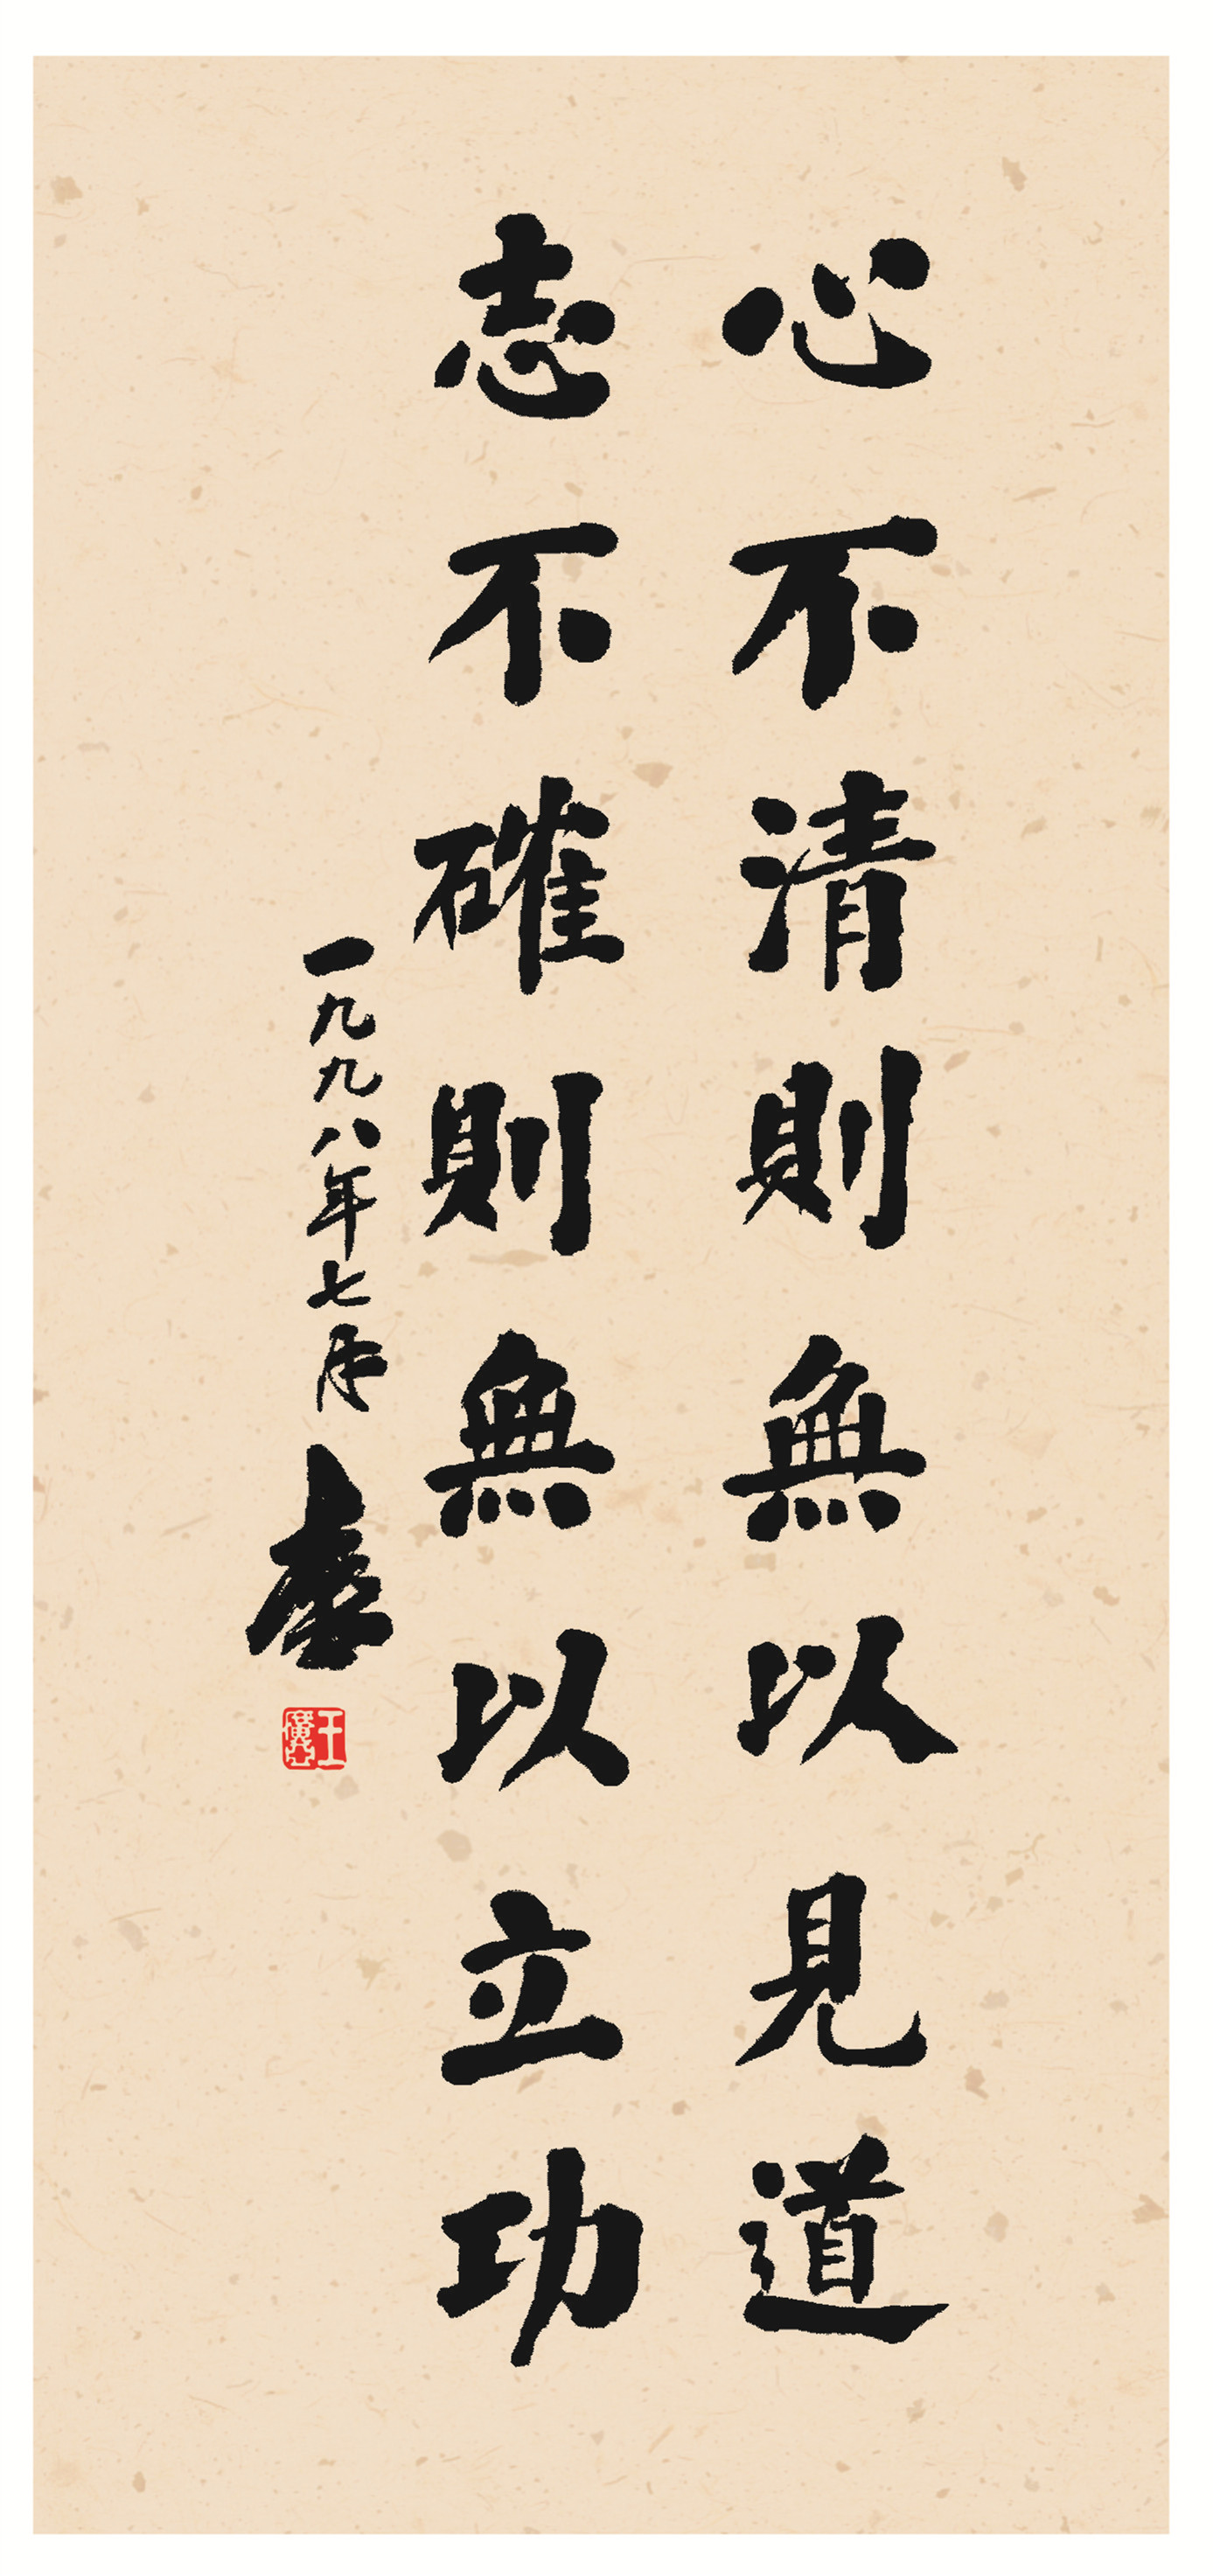 心不清則無以見道
志不確則無以立功
一九九八年七月
王